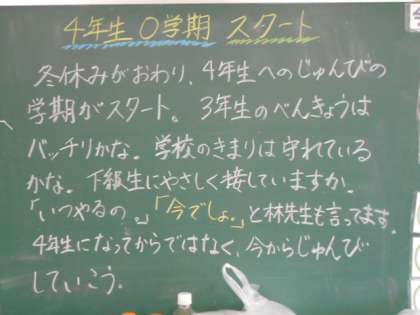 4年生0学期 スタート
冬休みがおわり、4年生へのじゅんびの
学期がスタート。3年生のべんきょうは
バッチリかな。学校のきまりは守れている
かな。下級生にやさしく接していますか。
「いつやるの。」「今でしょ。」と林先生も言ってます。
4年生になってからではなく、今からじゅんび…
していこう。